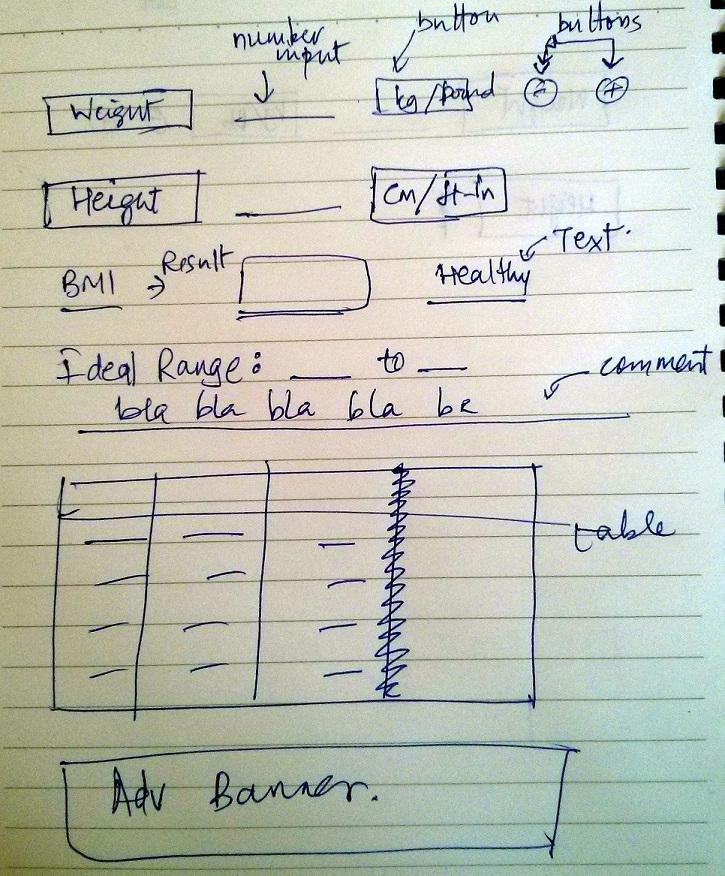 number input
button
buttons
Weight
kg/Pound
-
+
Height
Cm/ft-in
BMI → Result
Healthy
Text.
Ideal Range: __ to __
comment
bla bla bla bla
table
Adv Banner.